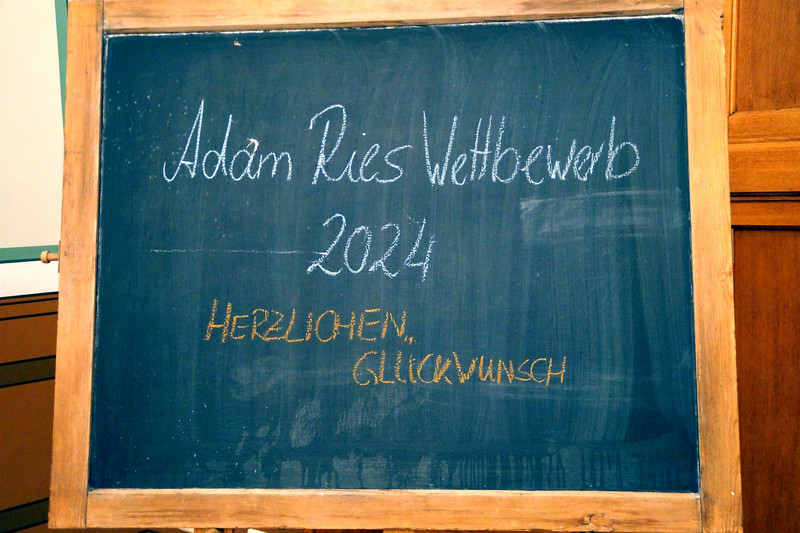 Adam Ries Wettbewerb
2024
HERZLICHEN
GLÜCKWUNSCH